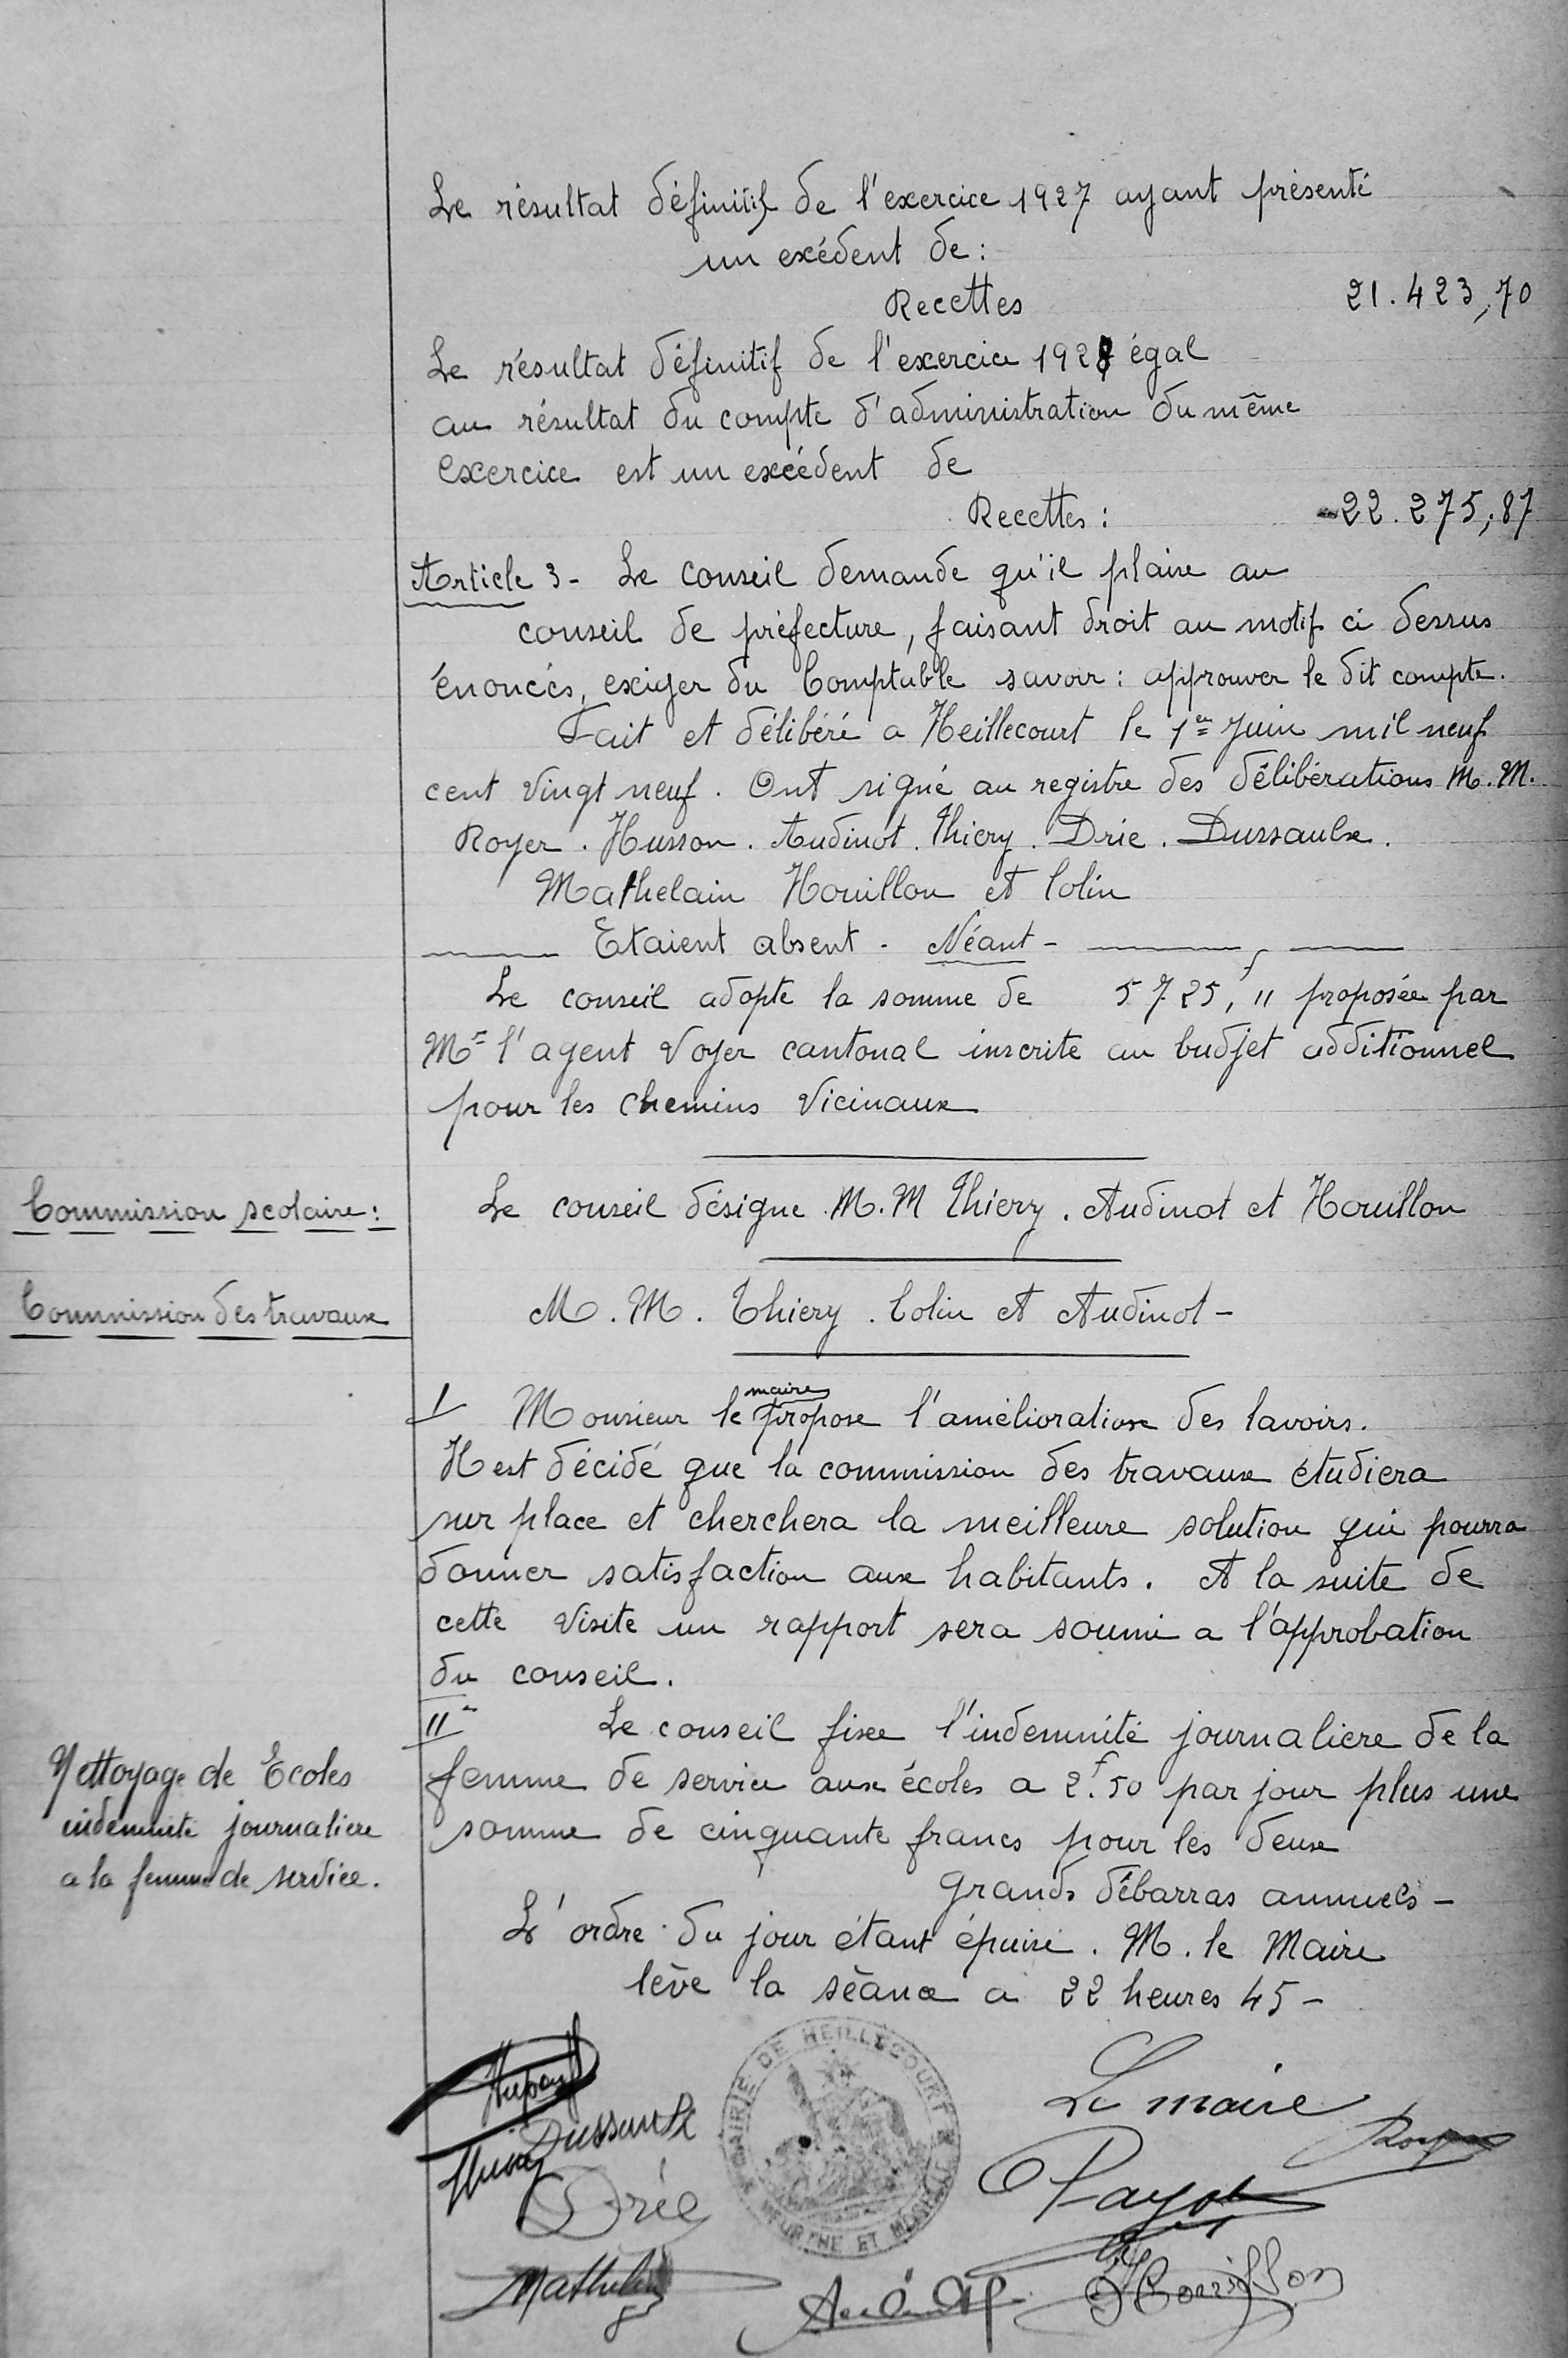 Le résultat définitif de l'exercice 1927 ayant présenté
un exédent de :
Recettes 21.423,70
Le résultat définitif de l'exercice 1928 égal
au résultat du compte d'administration du même
exercice est un excédent de
Recettes : 22.275,87
Article 3 - Le Conseil demande qu'il plaise au
conseil de préfecture, faisant droit au motif ci dessus
énoncés, exiger du Comptable savoir : approuver le dit compte.
Fait et délibéré a Heillecourt le 1er Juin mil neuf
cent vingt neuf. Ont signé au registre des délibérations M.M.
Royer. Husson. Audinot. Thiery. Drie. Dussaulx.
Mathelain Houillon et Colin
Etaient absent - Néant -
Le conseil adopte la somme de 5725f, " proposée par
Mr l'agent Voyer cantonal inscrite au budjet additionnel
pour les chemins vicinaux
Commission scolaire :
Le conseil désigne M.M Thiery. Audinot et Houillon
Commission des travaux
M.M. Thiery. Colin et Audinot -
I Monsieur le maire propose l'amélioration des lavoirs.
Il est décidé que la commission des travaux étudiera
sur place et cherchera la meilleure solution qui pourra
donner satisfaction aux habitants. A la suite de
cette visite un rapport sera soumi a l'approbation
du conseil.
II Le conseil fixe l'indemnité journaliere de la
Nettoyage de Ecoles
indemnité journaliere
a la femme de service.
femme de service aux écoles a 2f.50 par jour plus une
somme de cinquante francs pour les deux
grands débarras annuels -
L'ordre du jour étant épuisé. M. le Maire
lève la séance a 22 heures 45 -
MAIRIE DE HEILLECOURT
MEURTHE ET MOSELLE
Le maire
Royer
Dussaulx
Thiery
Drié
Mathelain
Audinot
Houillon